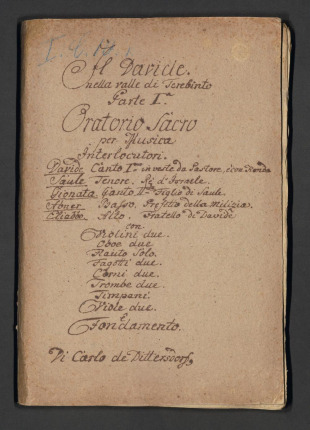 Il Davide.
nella valle di Terebinto
Parte I.ª
Oratorio Sacro
per Musica
Interlocutori.
Davide. Canto I.mo in veste da Pastore, e con
Saule. Tenore. Rè d'Israele.
Gionata. Canto II.do Figlio di Saule.
Abner. Basso. Prefetto della Milizia.
Eliabbe. Alto. Fratello di Davide
con
Violini due.
Oboe due.
Flauto Solo.
Fagotti due.
Corni due.
Trombe due.
Timpani.
Viole due.
E
Fondamento.
Di Carlo de Dittersdorf